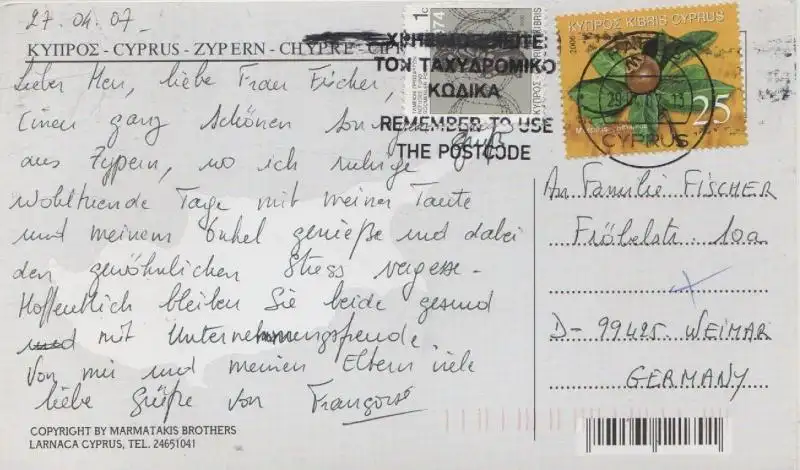 27.04.07.
ΚΥΠΡΟΣ - CYPRUS - ZYPERN - CHYPRE - CIPR
Lieber Herr, liebe Frau Fischer,
Einen ganz schönen sonnigen Gruß
aus Zypern, wo ich ruhige
wohltuende Tage mit meiner Tante
und meinem Onkel genieße und dabei
den gewöhnlichen Stress vergesse.
Hoffentlich bleiben Sie beide gesund
und mit Unternehmungsfreude
Von mir und meinen Eltern viele
liebe Grüße von Françoise
COPYRIGHT BY MARMATAKIS BROTHERS
LARNACA CYPRUS, TEL. 24651041
1c
1974
KIBRIS
ΧΡΗΣΙΜΟΠΟΙΕΙΤΕ
ΤΟΝ ΤΑΧΥΔΡΟΜΙΚΟ
ΚΩΔΙΚΑ
REMEMBER TO USE
THE POSTCODE
ΚΥΠΡΟΣ KIBRIS CYPRUS
2006
25
CYPRUS
An Familie FISCHER
Fröbelstr. 10a
D- 99425. WEIMAR
GERMANY